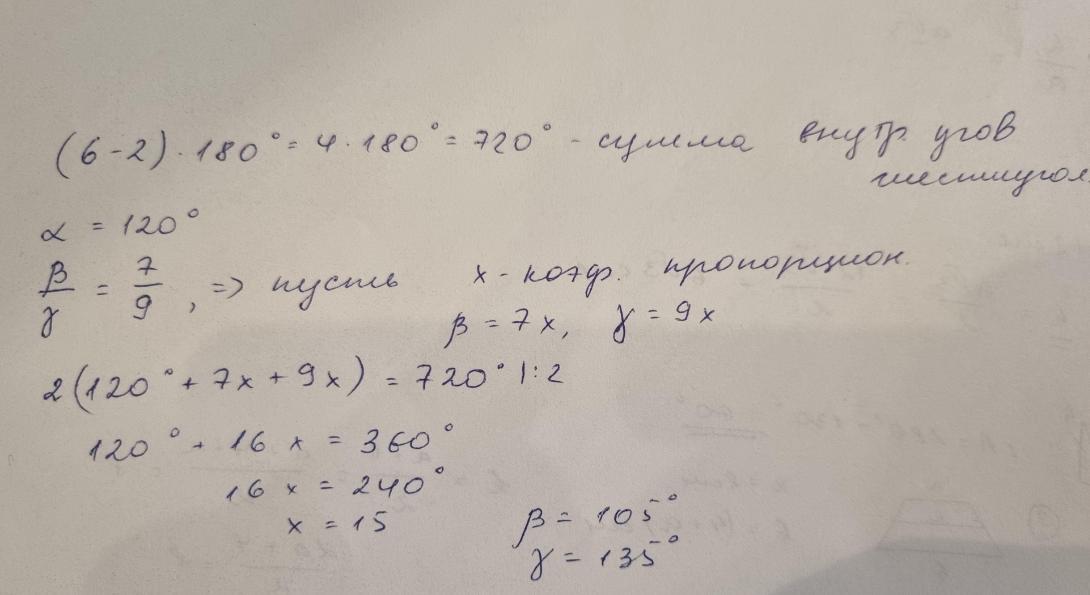 (6-2)·180° = 4·180° = 720° - сумма внутр. углов
шестиугол.
α = 120°
β/γ = 7/9, => пусть x - коэф. пропорцион.
β = 7x, γ = 9x
2(120° + 7x + 9x) = 720° |:2
120° + 16x = 360°
16x = 240°
x = 15
β = 105°
γ = 135°